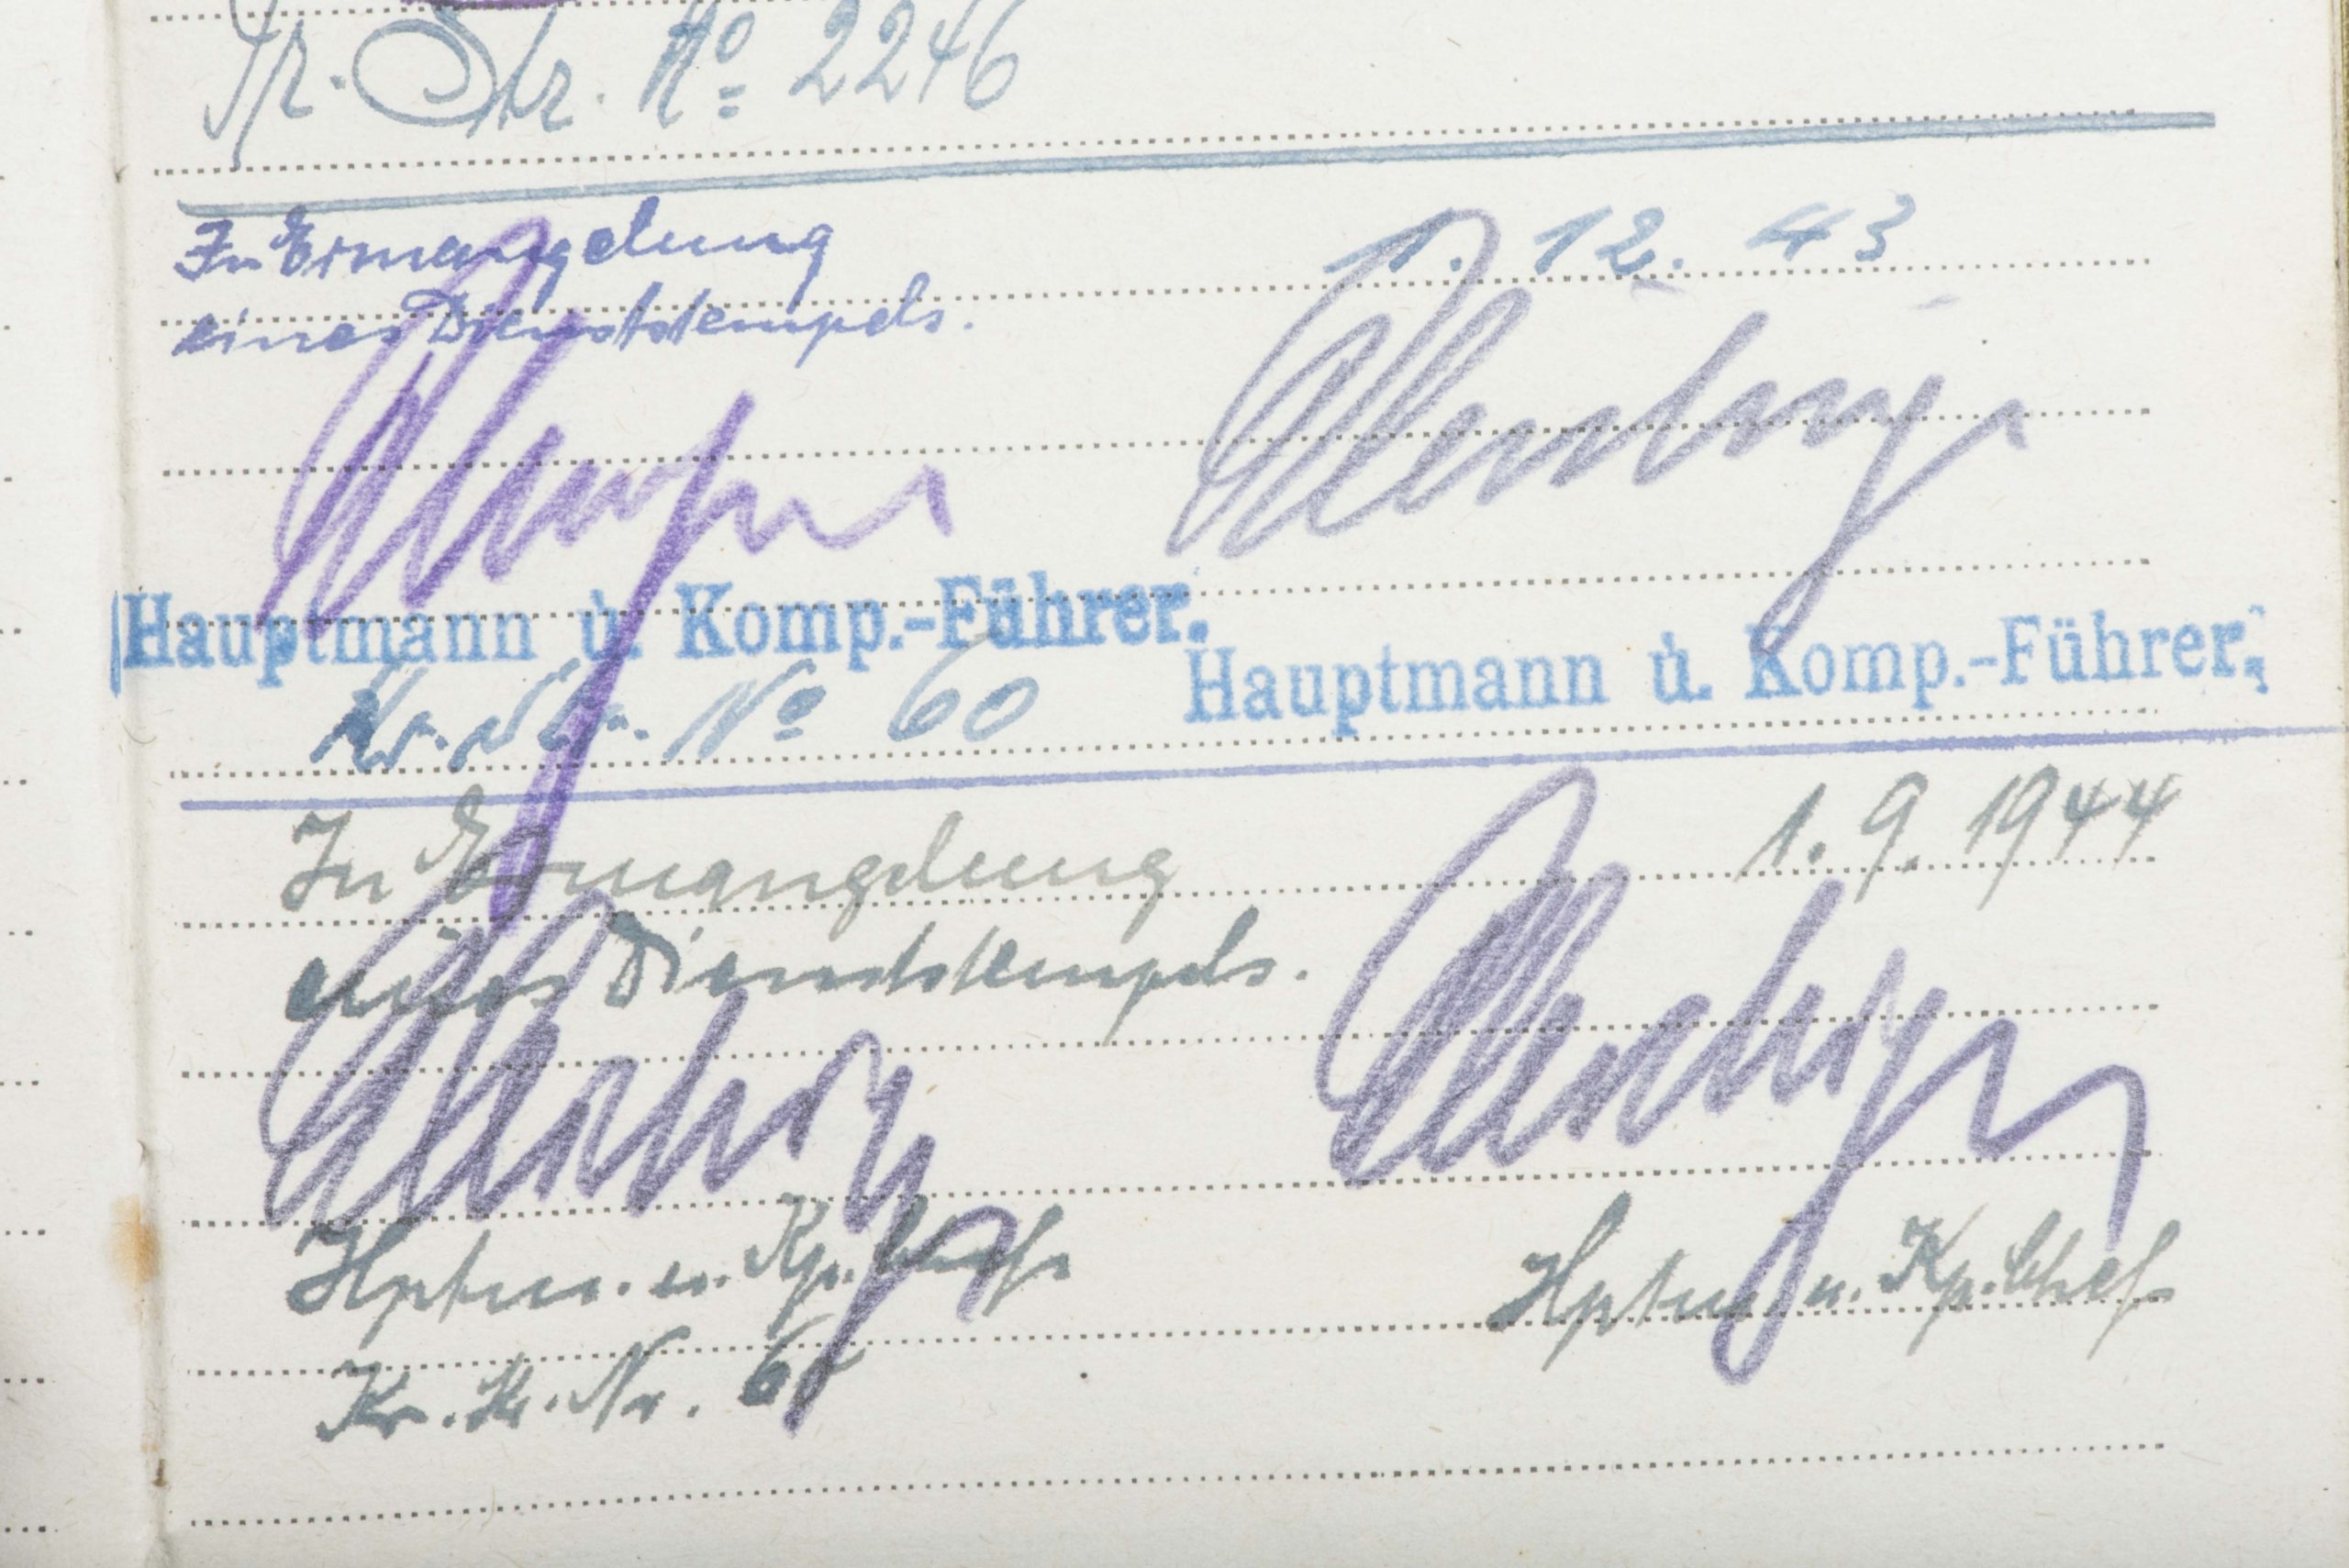 Kr. Str. Nº 2246
In Ermangelung
eines Dienststempels.
1. 12. 43
Hauptmann u. Komp.-Führer.
Hauptmann u. Komp.-Führer.
Kr. Str. Nº 60
In Ermangelung
eines Dienststempels.
1. 9. 1944
Hptm. u. Kp. Chef
Hptm. u. Kp. Chef
Kr. Nr.